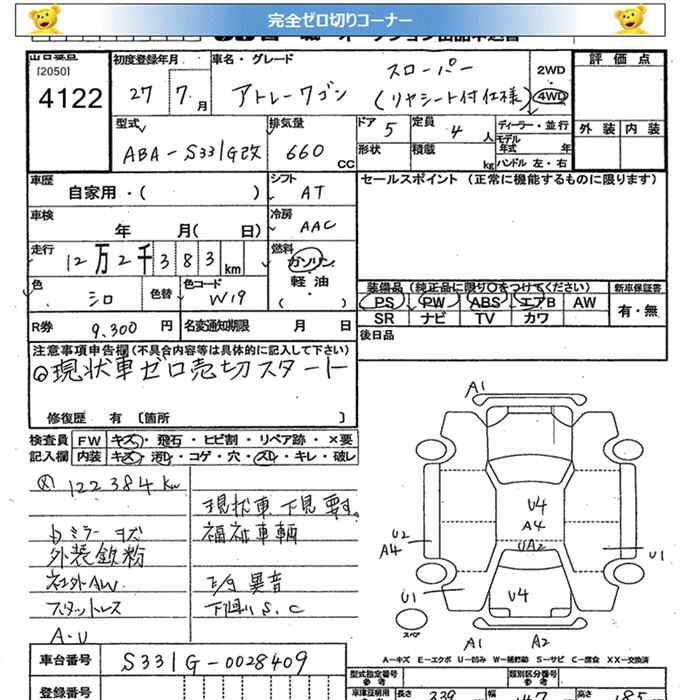 完全ゼロ切りコーナー
[2050]
4122
初度登録年月 27 7月
車名・グレード アトレーワゴン スローパー (リヤシート付仕様)
2WD・4WD
評価点
外装 内装
型式 ABA-S331G改
排気量 660 CC
ドア 5
定員 4人
形状
積載 kg
ディーラー・並行
モデル年式 年
ハンドル 左・右
車歴 自家用・( )
シフト AT
セールスポイント (正常に機能するものに限ります)
車検 年 月( 日)
冷房 AAC
走行 12万2千383km
燃料 ガソリン 軽油 ( )
色 シロ
色替
色コード W19
装備品(純正品に限り○をつけてください)
PS PW ABS エアB AW
SR ナビ TV カワ
新車保証書 有・無
R券 9,300円
名変通知期限 月 日
後日品
注意事項申告欄(不具合内容等は具体的に記入して下さい)
◎現状車ゼロ売切スタート
修復歴 有 [箇所 ]
検査員 FW キズ・飛石・ヒビ割・リペア跡・×要
記入欄 内装 キズ・汚れ・コゲ・穴・スレ・キレ・破レ
122384km
現状車下見要す。
ミラーキズ 福祉車輌
外装鉄粉
社外AW 異音
スタットレス 下回りS.C
A・U
A1
U4
A4
UA2
U2
A4
U1
U1
U4
スペア
A1 A2
A-キズ E-エクボ U-凹み W-補修跡 S-サビ C-腐食 XX-交換済
車台番号 S331G-0028409
型式指定番号
類別区分番号
登録番号
長さ 339 幅 147 高さ 185